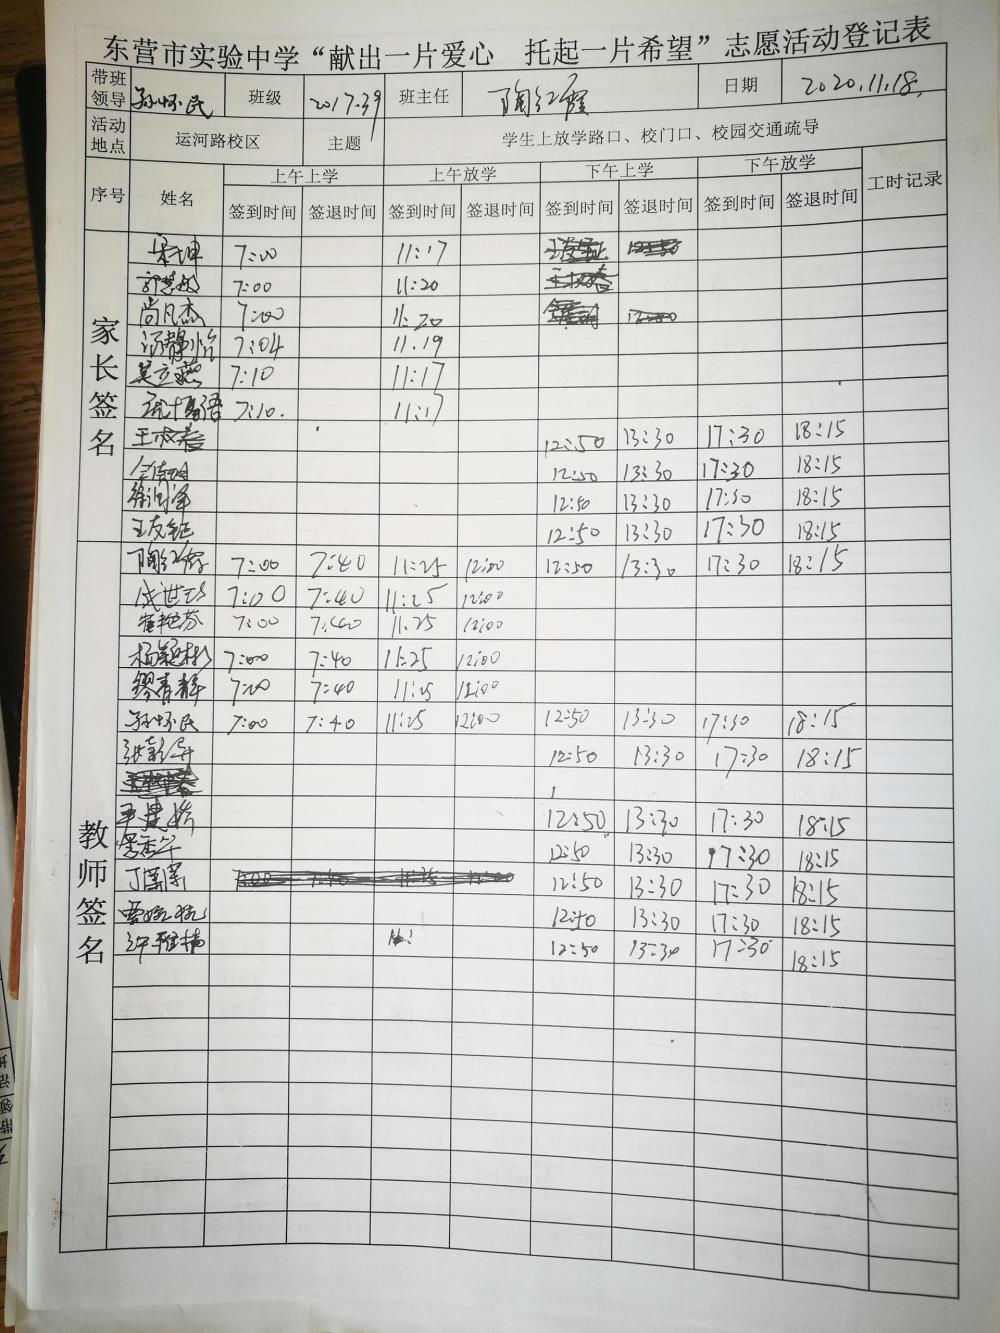 东营市实验中学“献出一片爱心 托起一片希望”志愿活动登记表
带班领导 孙怀民 班级 2017.39 班主任 陶红霞 日期 2020.11.18.
活动地点 运河路校区 主题 学生上放学路口、校门口、校园交通疏导
序号 姓名 上午上学 上午放学 下午上学 下午放学 工时记录
签到时间 签退时间 签到时间 签退时间 签到时间 签退时间 签到时间 签退时间
家长签名
7:00 11:17
7:00 11:20
尚凡杰 7:00 11:20
冯静怡 7:04 11.19
吴立燕 7:10 11:17
7:10. 11:17
王淑春 12:50 13:30 17:30 18:15
12:50 13:30 17:30 18:15
徐润泽 12:50 13:30 17:30 18:15
王友钜 12:50 13:30 17:30 18:15
教师签名
陶红霞 7:00 7:40 11:25 12:00 12:50 13:30 17:30 18:15
成世珍 7:00 7:40 11:25 12:00
崔艳芬 7:00 7:40 11:25 12:00
杨颖彬 7:00 7:40 11:25 12:00
缪春辉 7:00 7:40 11:25 12:00
孙怀民 7:00 7:40 11:25 12:00 12:50 13:30 17:30 18:15
12:50 13:30 17:30 18:15
12:50 13:30 17:30 18:15
12:50 13:30 17:30 18:15
12:50 13:30 17:30 18:15
12:50 13:30 17:30 18:15
许雅楠 12:50 13:30 17:30 18:15